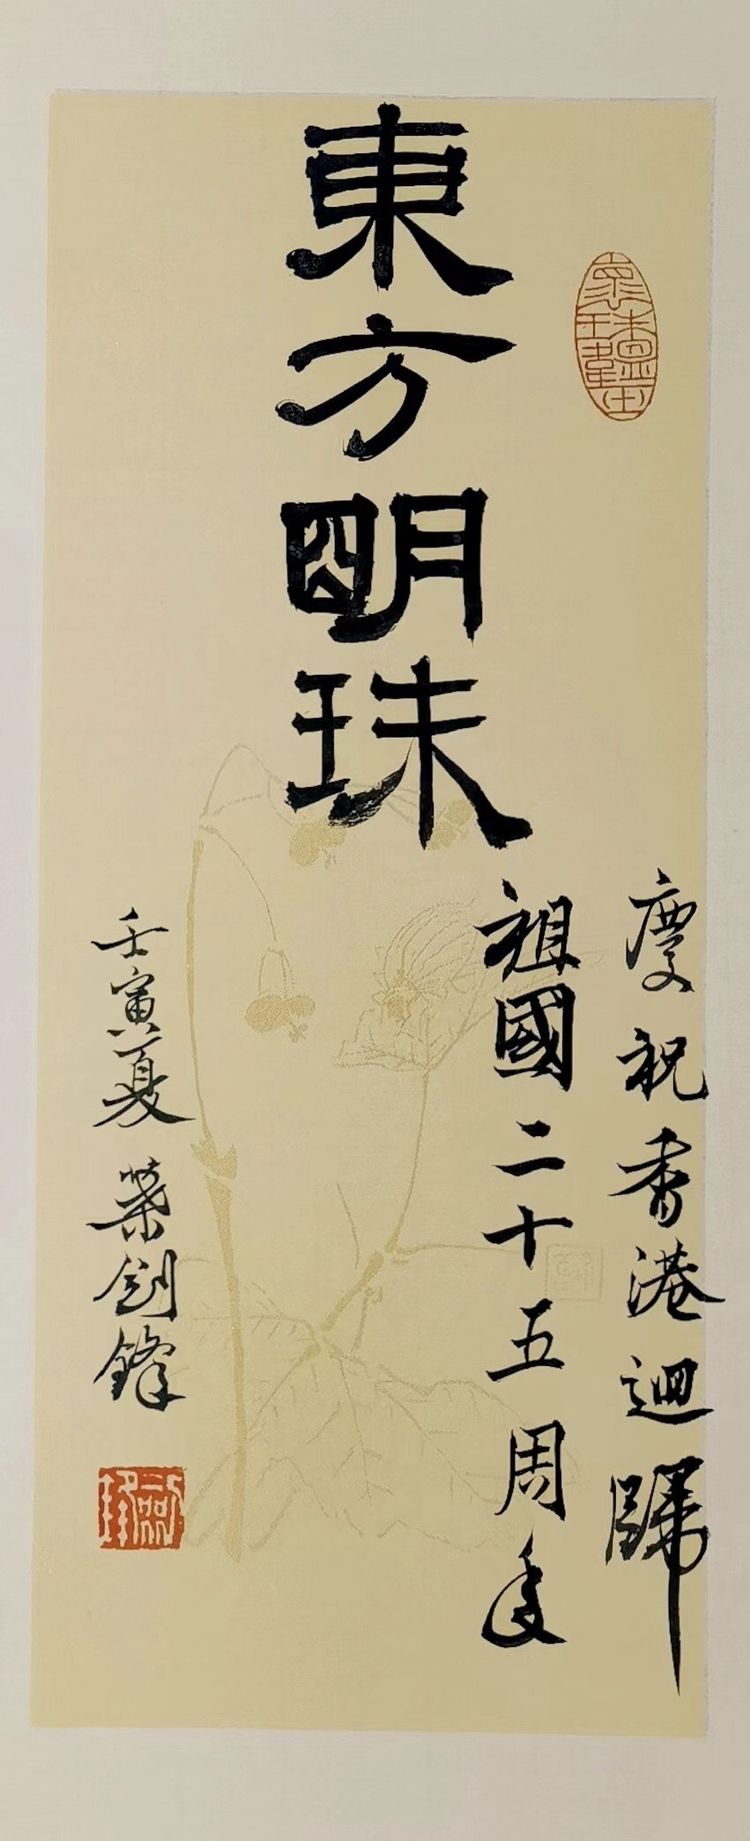 東方明珠
慶祝香港迴歸
祖國二十五周年
壬寅夏 榮劍鋒
劍鋒